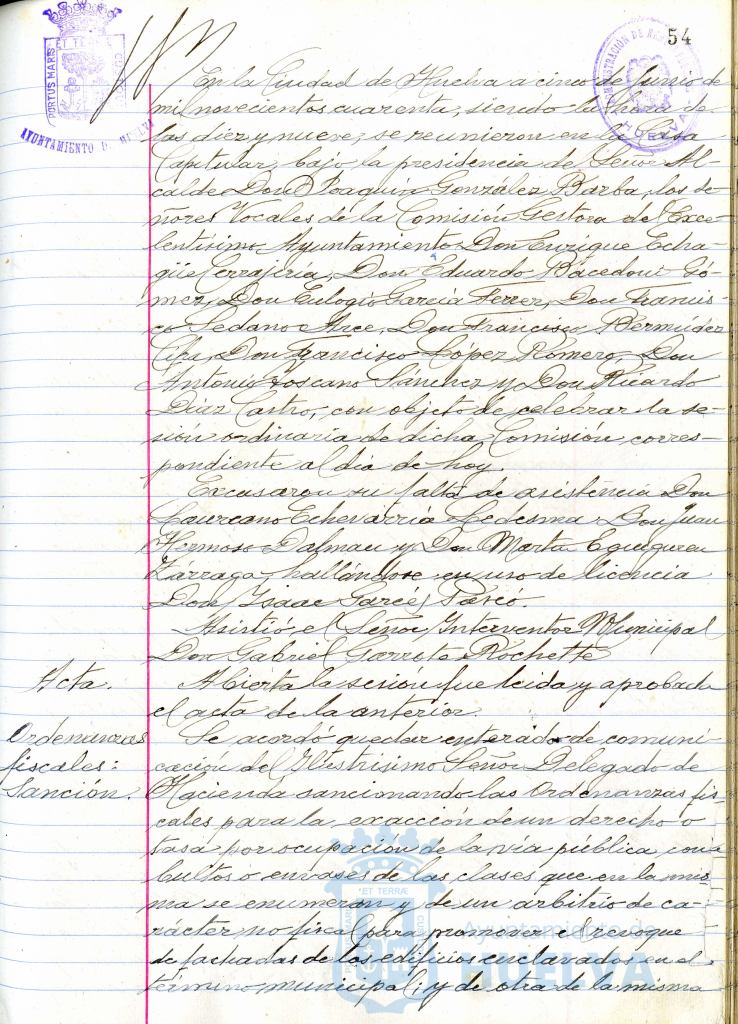 54
PORTUS MARIS
ET TERRÆ
AYUNTAMIENTO DE HUELVA
ADMINISTRACIÓN DE
HUELVA
En la Ciudad de Huelva a cinco de Junio de
mil novecientos cuarenta, siendo la hora de
las diez y nueve, se reunieron en la Casa
Capitular, bajo la presidencia del Señor Al-
calde Don Joaquín González Barba, los Se-
ñores Vocales de la Comisión Gestora del Exce-
lentísimo Ayuntamiento Don Enrique Echa-
güe Cerrajería, Don Eduardo Bacedoni Gó-
mez, Don Eulogio García Ferrer, Don Francis-
co Sedano Arce, Don Francisco Bermúdez
Don Francisco López Romero, Don
Antonio Toscano Sánchez y Don Ricardo
Díaz Castro, con objeto de celebrar la se-
sión ordinaria de dicha Comisión corres-
pondiente al día de hoy.
Excusaron su falta de asistencia Don
Laureano Echevarría Ledesma Don Juan
Hermoso Dalmau y Don Martín Eguiguren
Zárraga, hallándose en uso de licencia
Don Isaac Garcés
Asistió el Señor Interventor Municipal
Don Gabriel Garrute Rochette
Acta.
Abierta la sesión fue leida y aprobada
el acta de la anterior.
Ordenanzas
fiscales:
Sanción.
Se acordó quedar enterado de comuni-
cación del Ilustrísimo Señor Delegado de
Hacienda sancionando las Ordenanzas fis-
cales para la exacción de un derecho o
tasa por ocupación de la vía pública con
bultos o envases de las clases que en la mis-
ma se enumeran y de un arbitrio de ca-
rácter no fiscal para promover el revoque
de fachadas de los edificios enclavados en el
término municipal; y de otra de la misma
PORTUS MARIS
ET TERRÆ
Ayuntamiento de
HUELVA